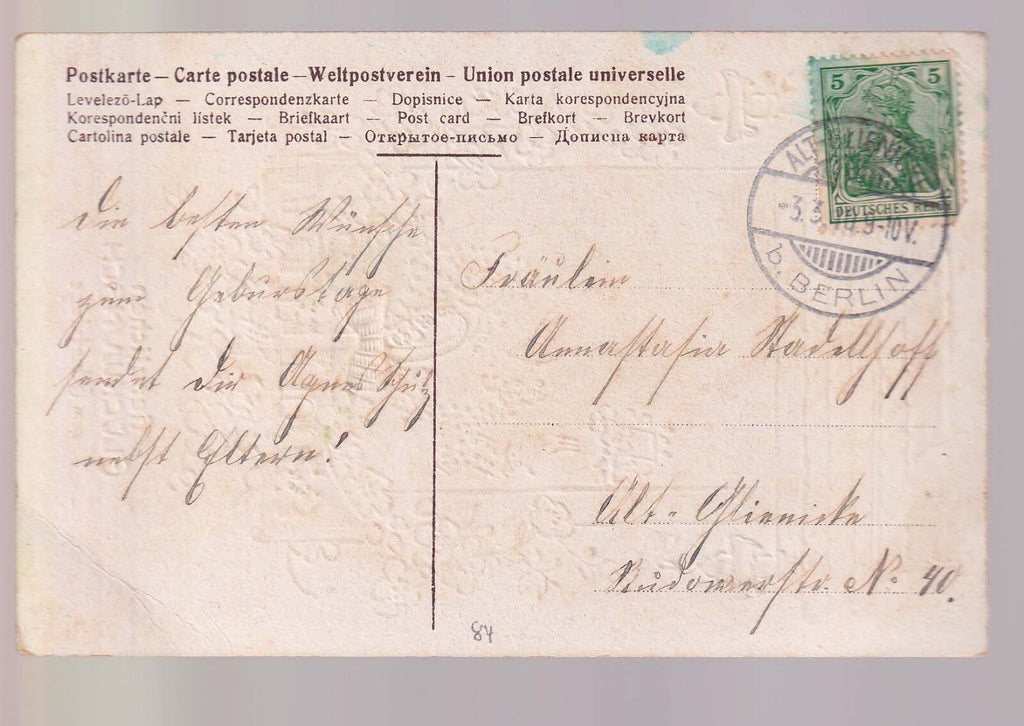 Postkarte – Carte postale – Weltpostverein – Union postale universelle
Levelező-Lap — Correspondenzkarte — Dopisnice — Karta korespondencyjna
Korespondenční lístek — Briefkaart — Post card — Brefkort — Brevkort
Cartolina postale — Tarjeta postal — Открытое-письмо — Дописна карта
5 5
DEUTSCHES REICH
ALT-GLIENICKE
-3.3. 9-10V.
b. BERLIN
Die besten Wünsche
zum Geburstage
sendet Dir Agnes Schulz
nebst Eltern!
Fräulein
Annastasia Stadellhoff
Alt-Glienicke
Rudowerstr. No 40.
84